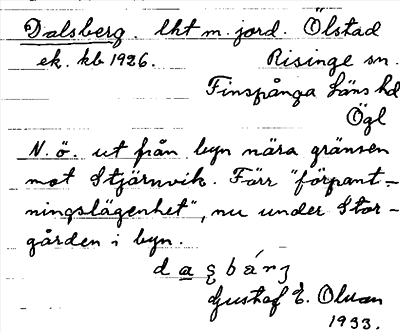 Dalsberg. lht m. jord. Ölstad
ek. kb 1926. Risinge sn.
Finspånga läns hd
Ögl
N. ö. ut från byn nära gränsen
mot Stjärnvik. Förr "förpant-
ningslägenhet", nu under Stor-
gården i byn.
Gustaf E. Olsson
1933.